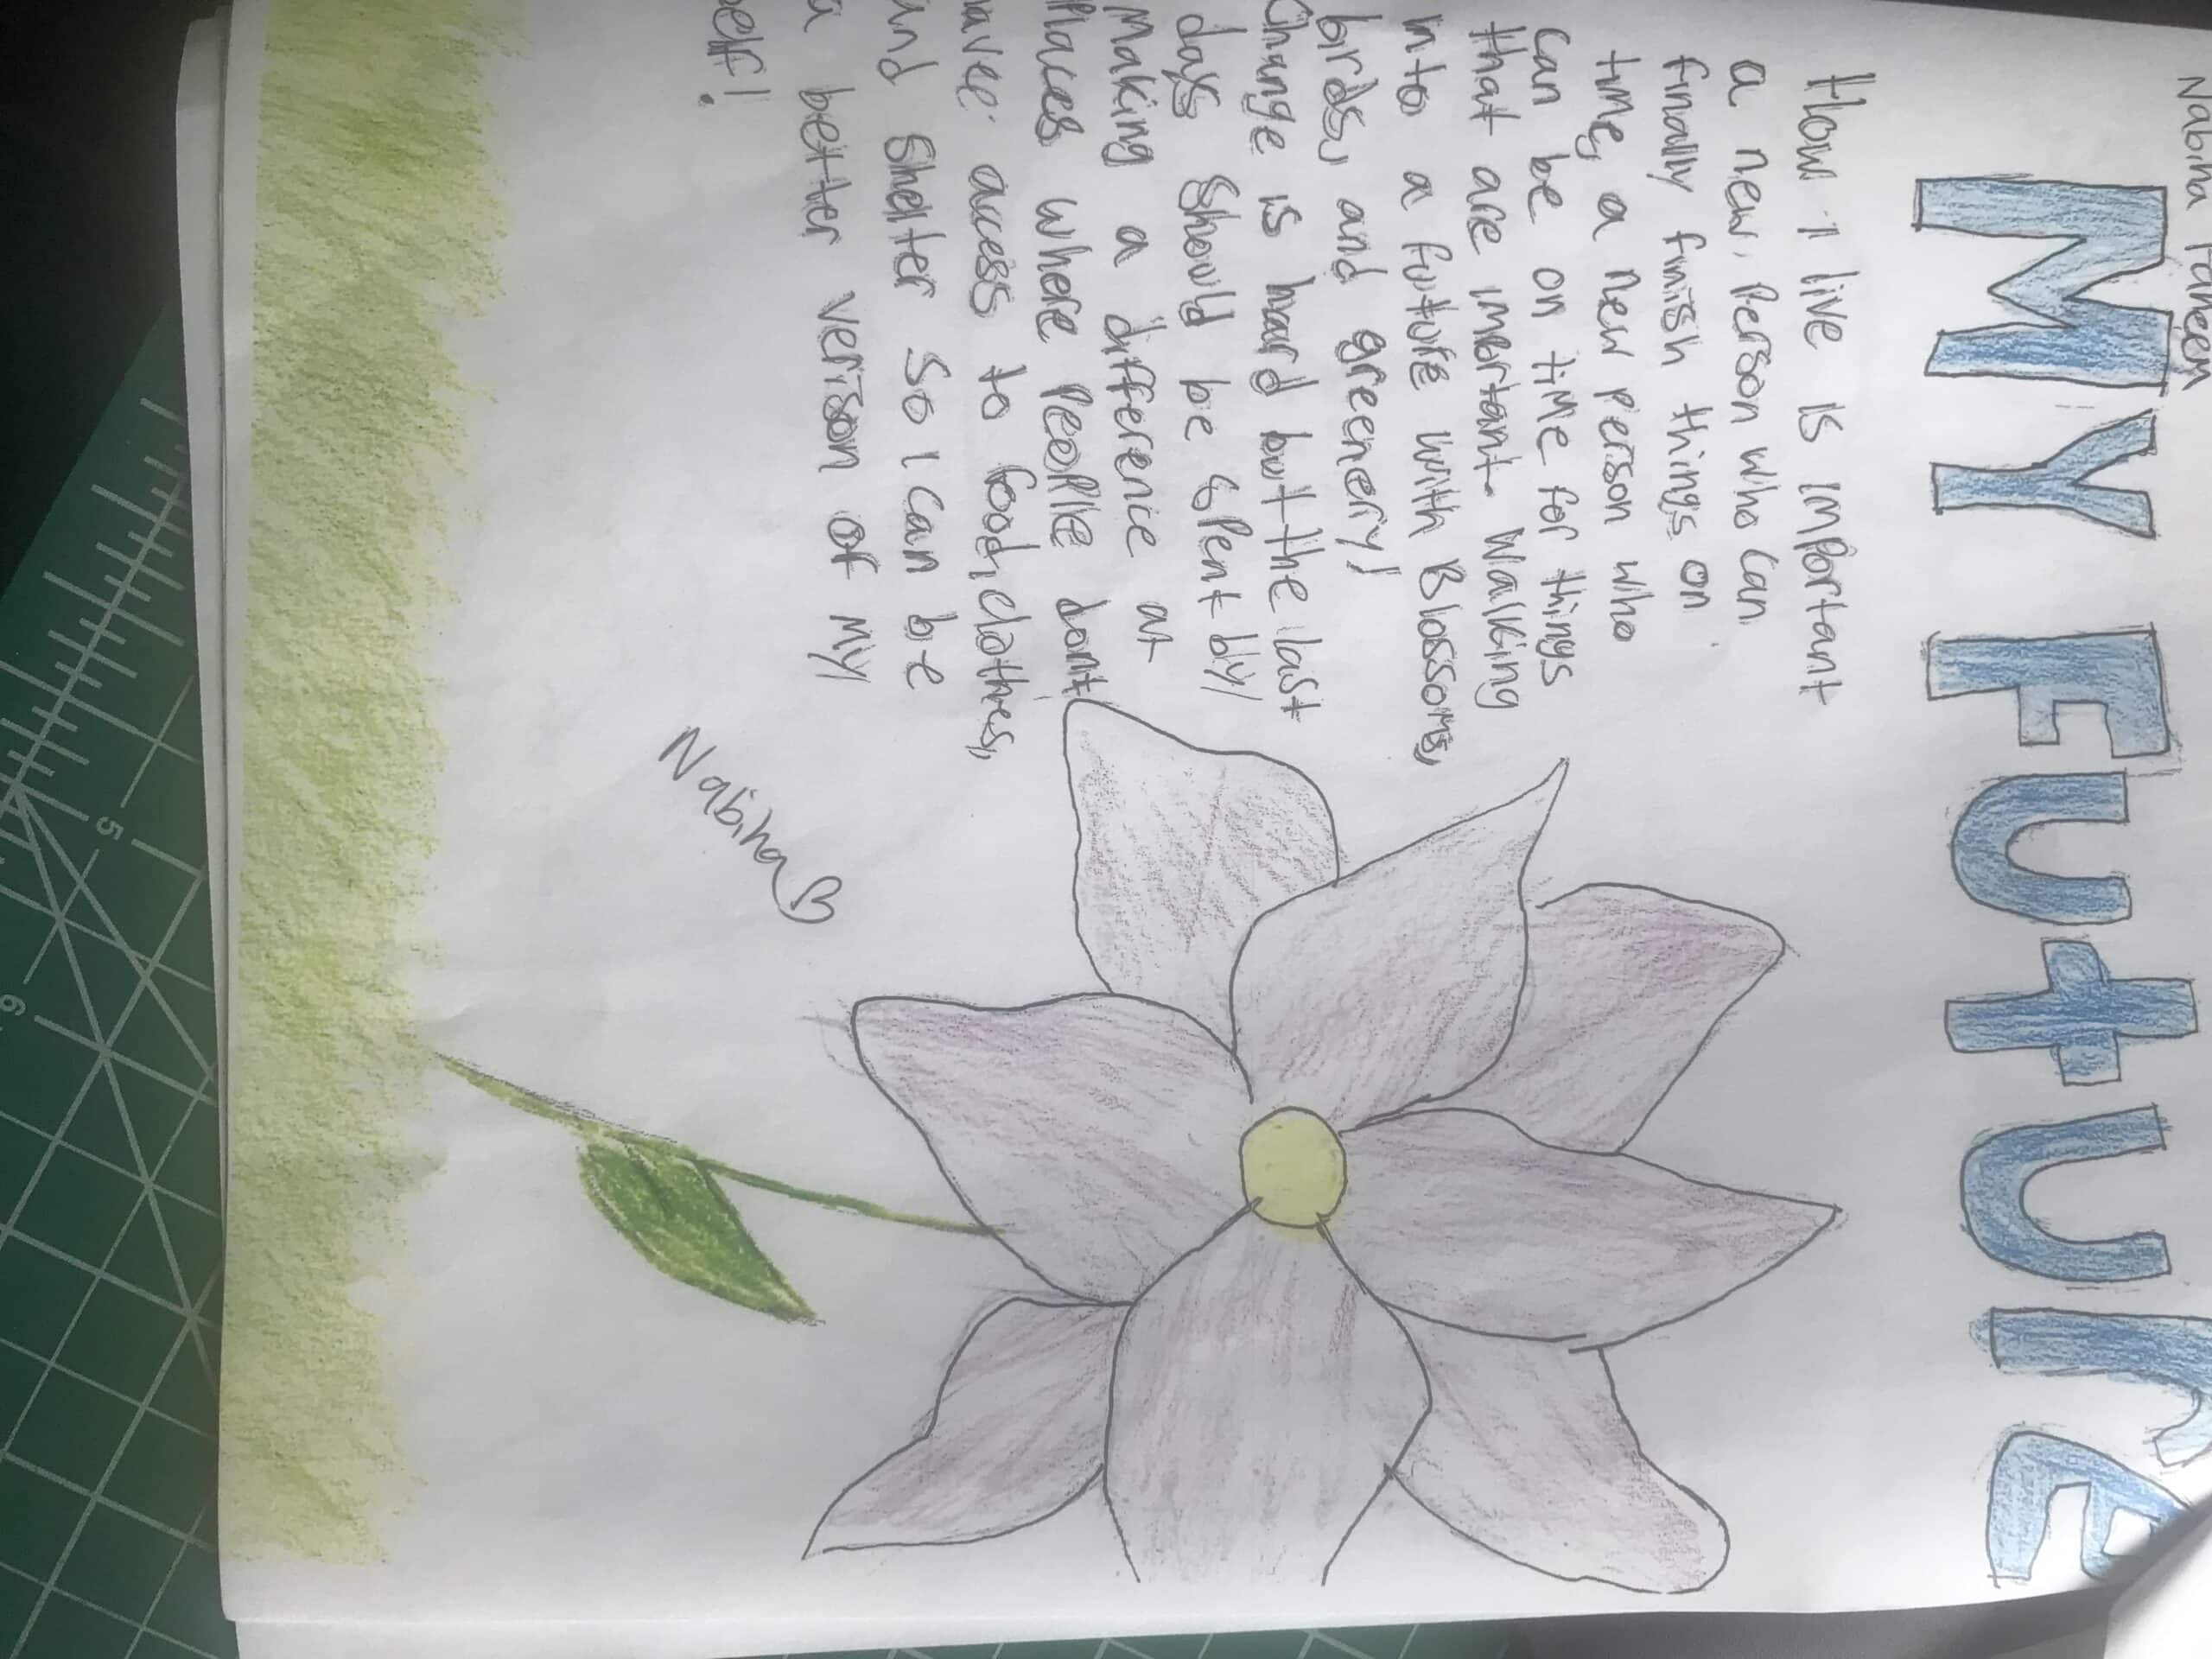 Nabiha Tahsen
MY FUtUrE
How I live is important
a new person who can
finally finish things on
time, a new person who
can be on time for things
that are imortant. Walking
into a future with Blossoms,
birds, and greenery!
Change is hard but the last
days should be spent bly/
Making a difference at
Places where People dont
have access to food, clothes,
and shelter so I can be
a better verison of my
self!
Nabiha
5
6